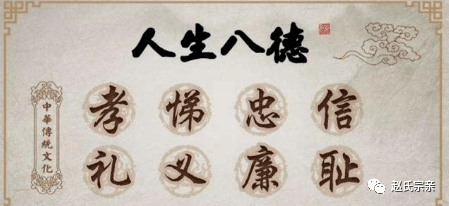 人生八德
中華傳統文化
孝悌忠信
礼义廉耻
赵氏宗亲